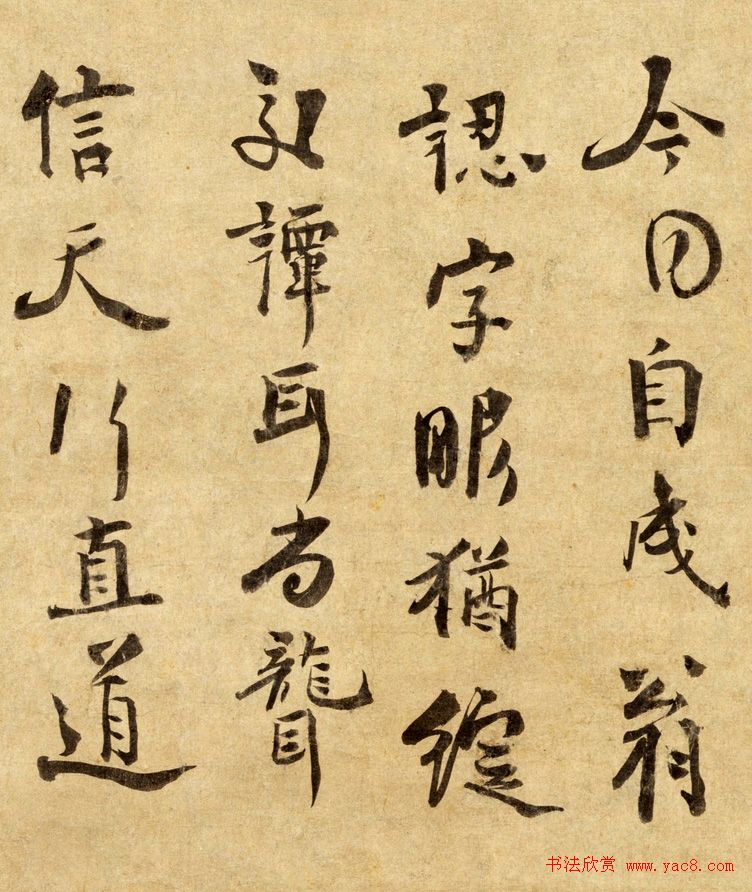 今日自成翁
認字眼猶綻
譚耳尚聾
信天行直道
书法欣赏 www.yac8.com